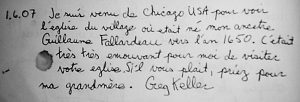 1.6.07 Je suis venu de Chicago USA pour voir
l'eglise du village où etait né mon ancetre
Guillaume Fallardeau vers l'an 1650. C'était
très très emouvant pour moi de visiter
votre eglise. S'il vous plait, priez pour
ma grandmère. Greg Keller